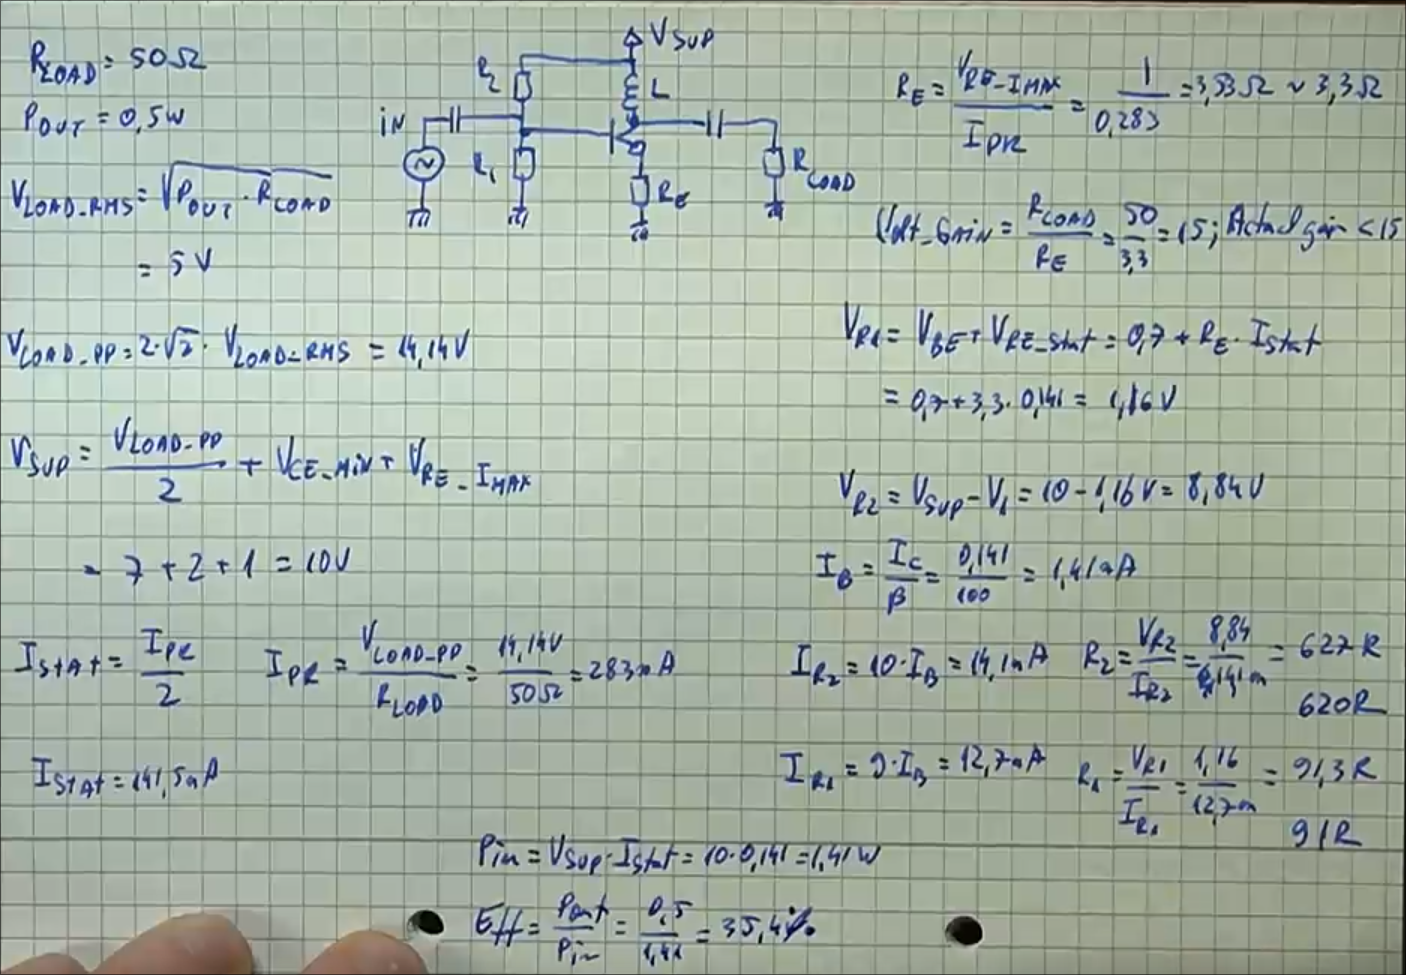 R_LOAD = 50Ω
P_OUT = 0,5W
V_LOAD_RMS = √(P_OUT · R_LOAD)
= 5V
V_LOAD_PP = 2·√2 · V_LOAD_RMS = 14,14V
V_SUP = V_LOAD_PP / 2 + V_CE_MIN + V_RE_IMAX
= 7 + 2 + 1 = 10V
I_Stat = I_PK / 2
I_PK = V_LOAD_PP / R_LOAD = 14,14V / 50Ω = 283mA
I_Stat = 141,5mA
V_SUP
R2
L
iN
R1
R_E
R_LOAD
R_E = V_RE_IMAX / I_PK = 1 / 0,283 = 3,53Ω ~ 3,3Ω
Volt_Gain = R_LOAD / R_E = 50 / 3,3 = 15; Actual gain < 15
V_R1 = V_BE + V_RE_Stat = 0,7 + R_E · I_Stat
= 0,7 + 3,3 · 0,141 = 1,16V
V_R2 = V_SUP - V_1 = 10 - 1,16V = 8,84V
I_B = I_C / β = 0,141 / 100 = 1,41mA
I_R2 = 10 · I_B = 14,1mA
R2 = V_R2 / I_R2 = 8,84 / 14,1m = 627R
620R
I_R1 = 9 · I_B = 12,7mA
R1 = V_R1 / I_R1 = 1,16 / 12,7m = 91,3R
91R
Pin = V_SUP · I_Stat = 10 · 0,141 = 1,41W
Eff = Pout / Pin = 0,5 / 1,41 = 35,4%